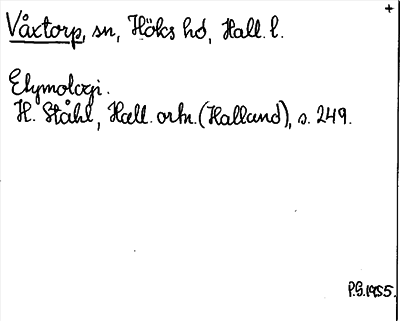 +
Våxtorp, sn, Höks hd, Hall. l.
Etymologi.
H. Ståhl, Hall. ortn. (Halland), s. 249.
P.G. 1955.